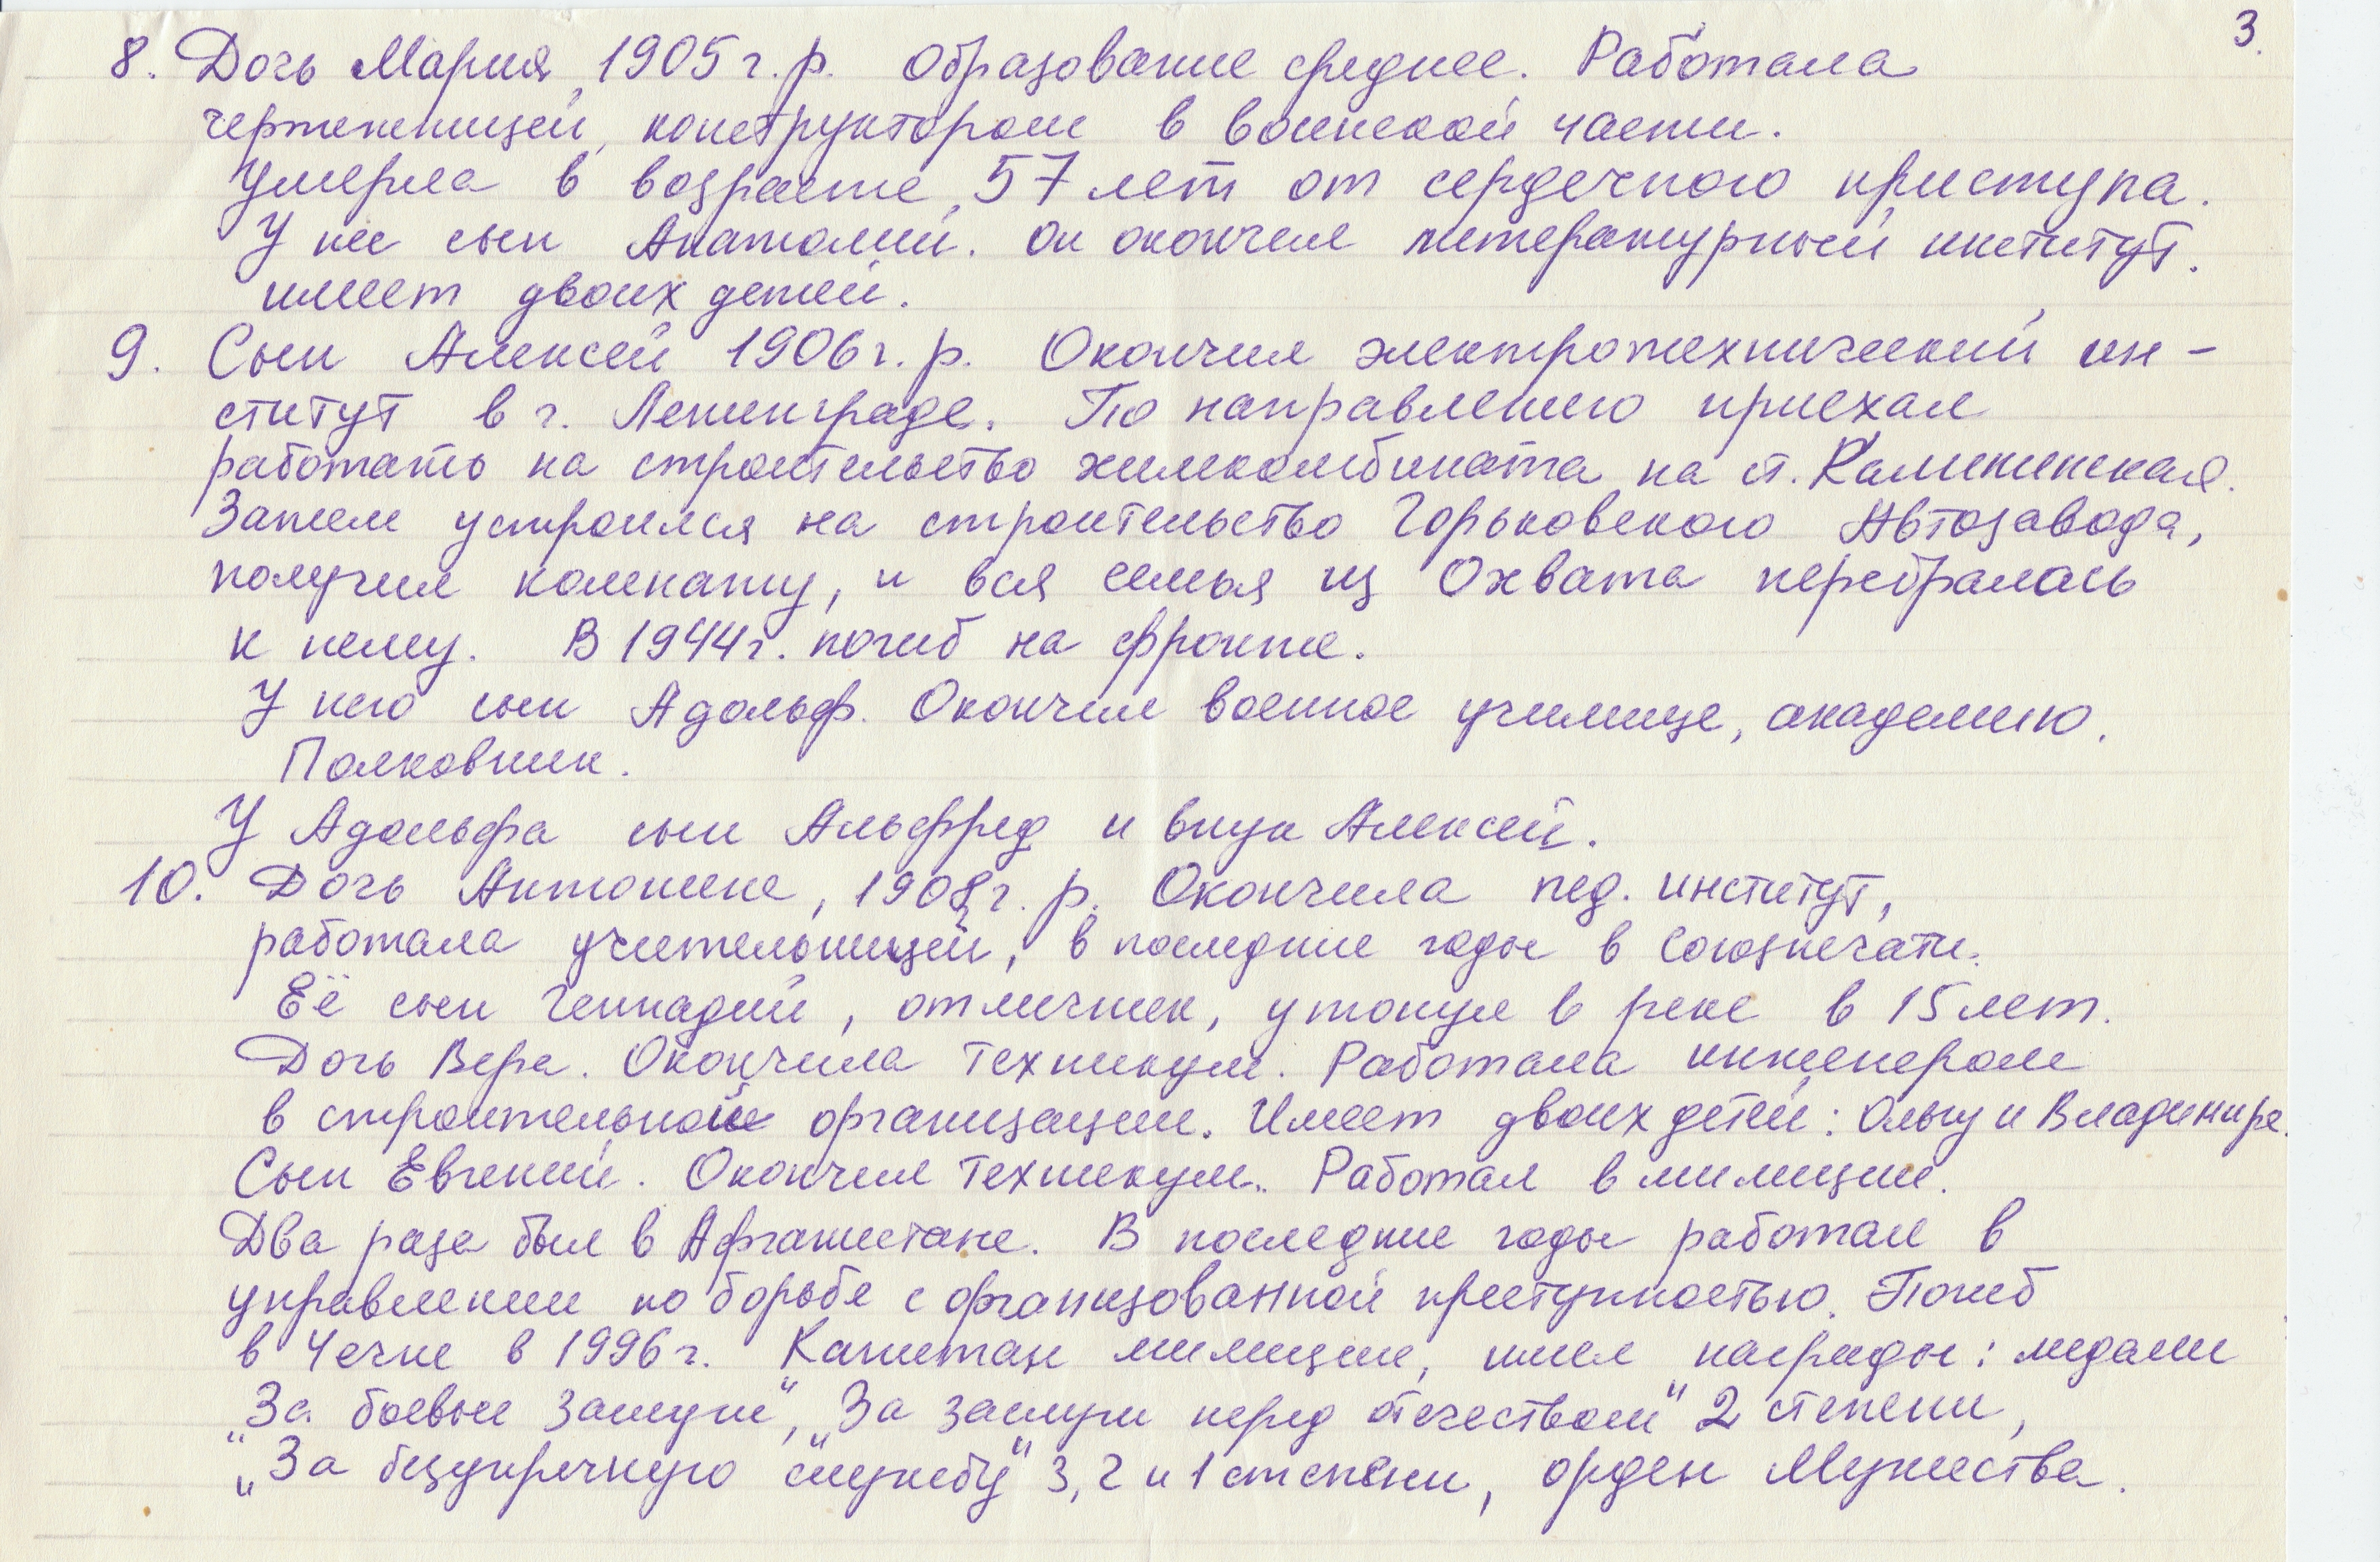 3.
8. Дочь Мария, 1905 г.р. Образование среднее. Работала
чертежницей, конструктором в воинской части.
Умерла в возрасте 57 лет от сердечного приступа.
У нее сын Анатолий. Он окончил литературный институт.
имеет двоих детей.
9. Сын Алексей 1906 г.р. Окончил электротехнический ин-
ститут в г. Ленинграде. По направлению приехал
работать на строительство химкомбината на ст. Калининская.
Затем устроился на строительство Горьковского Автозавода,
получил комнату, и вся семья из Охвата перебралась
к нему. В 1944 г. погиб на фронте.
У него сын Адольф. Окончил военное училище, академию.
Полковник.
У Адольфа сын Альфред и внук Алексей.
10. Дочь Антонина, 1908 г.р. Окончила пед. институт,
работала учительницей, в последние годы в Союзпечати.
Её сын Геннадий, отличник, утонул в реке в 15 лет.
Дочь Вера. Окончила техникум. Работала инженером
в строительной организации. Имеет двоих детей: Ольгу и Владимира.
Сын Евгений. Окончил техникум. Работал в милиции.
Два раза был в Афганистане. В последние годы работал в
управлении по борьбе с организованной преступностью. Погиб
в Чечне в 1996 г. Капитан милиции, имел награды: медали
"За боевые заслуги", "За заслуги перед отечеством" 2 степени,
"За безупречную службу" 3, 2 и 1 степени, орден Мужества.